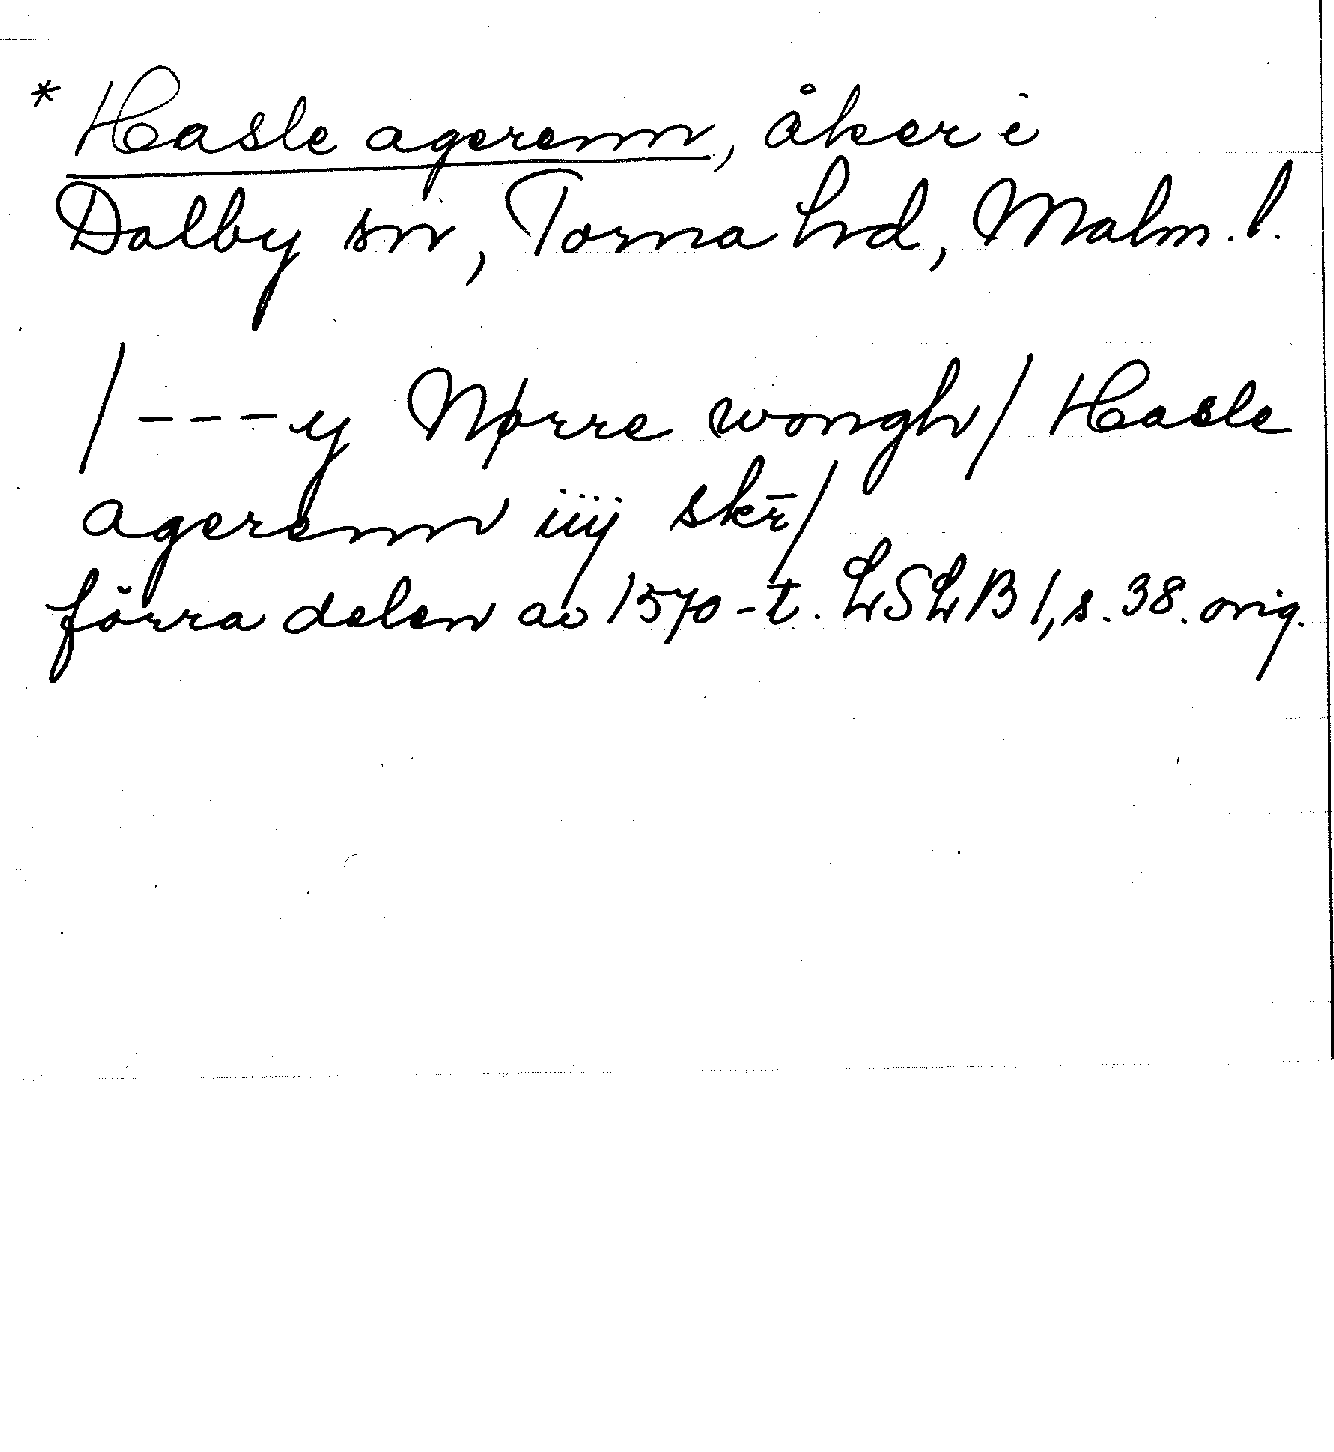 * Hasle agerenn, åker i
Dalby sn, Torna hd, Malm. l.
/ - - - y Nørre wongh/ Hasle
agerenn iiij skr̄/
förra delen av 1570-t. LSLB 1, s. 38. orig.